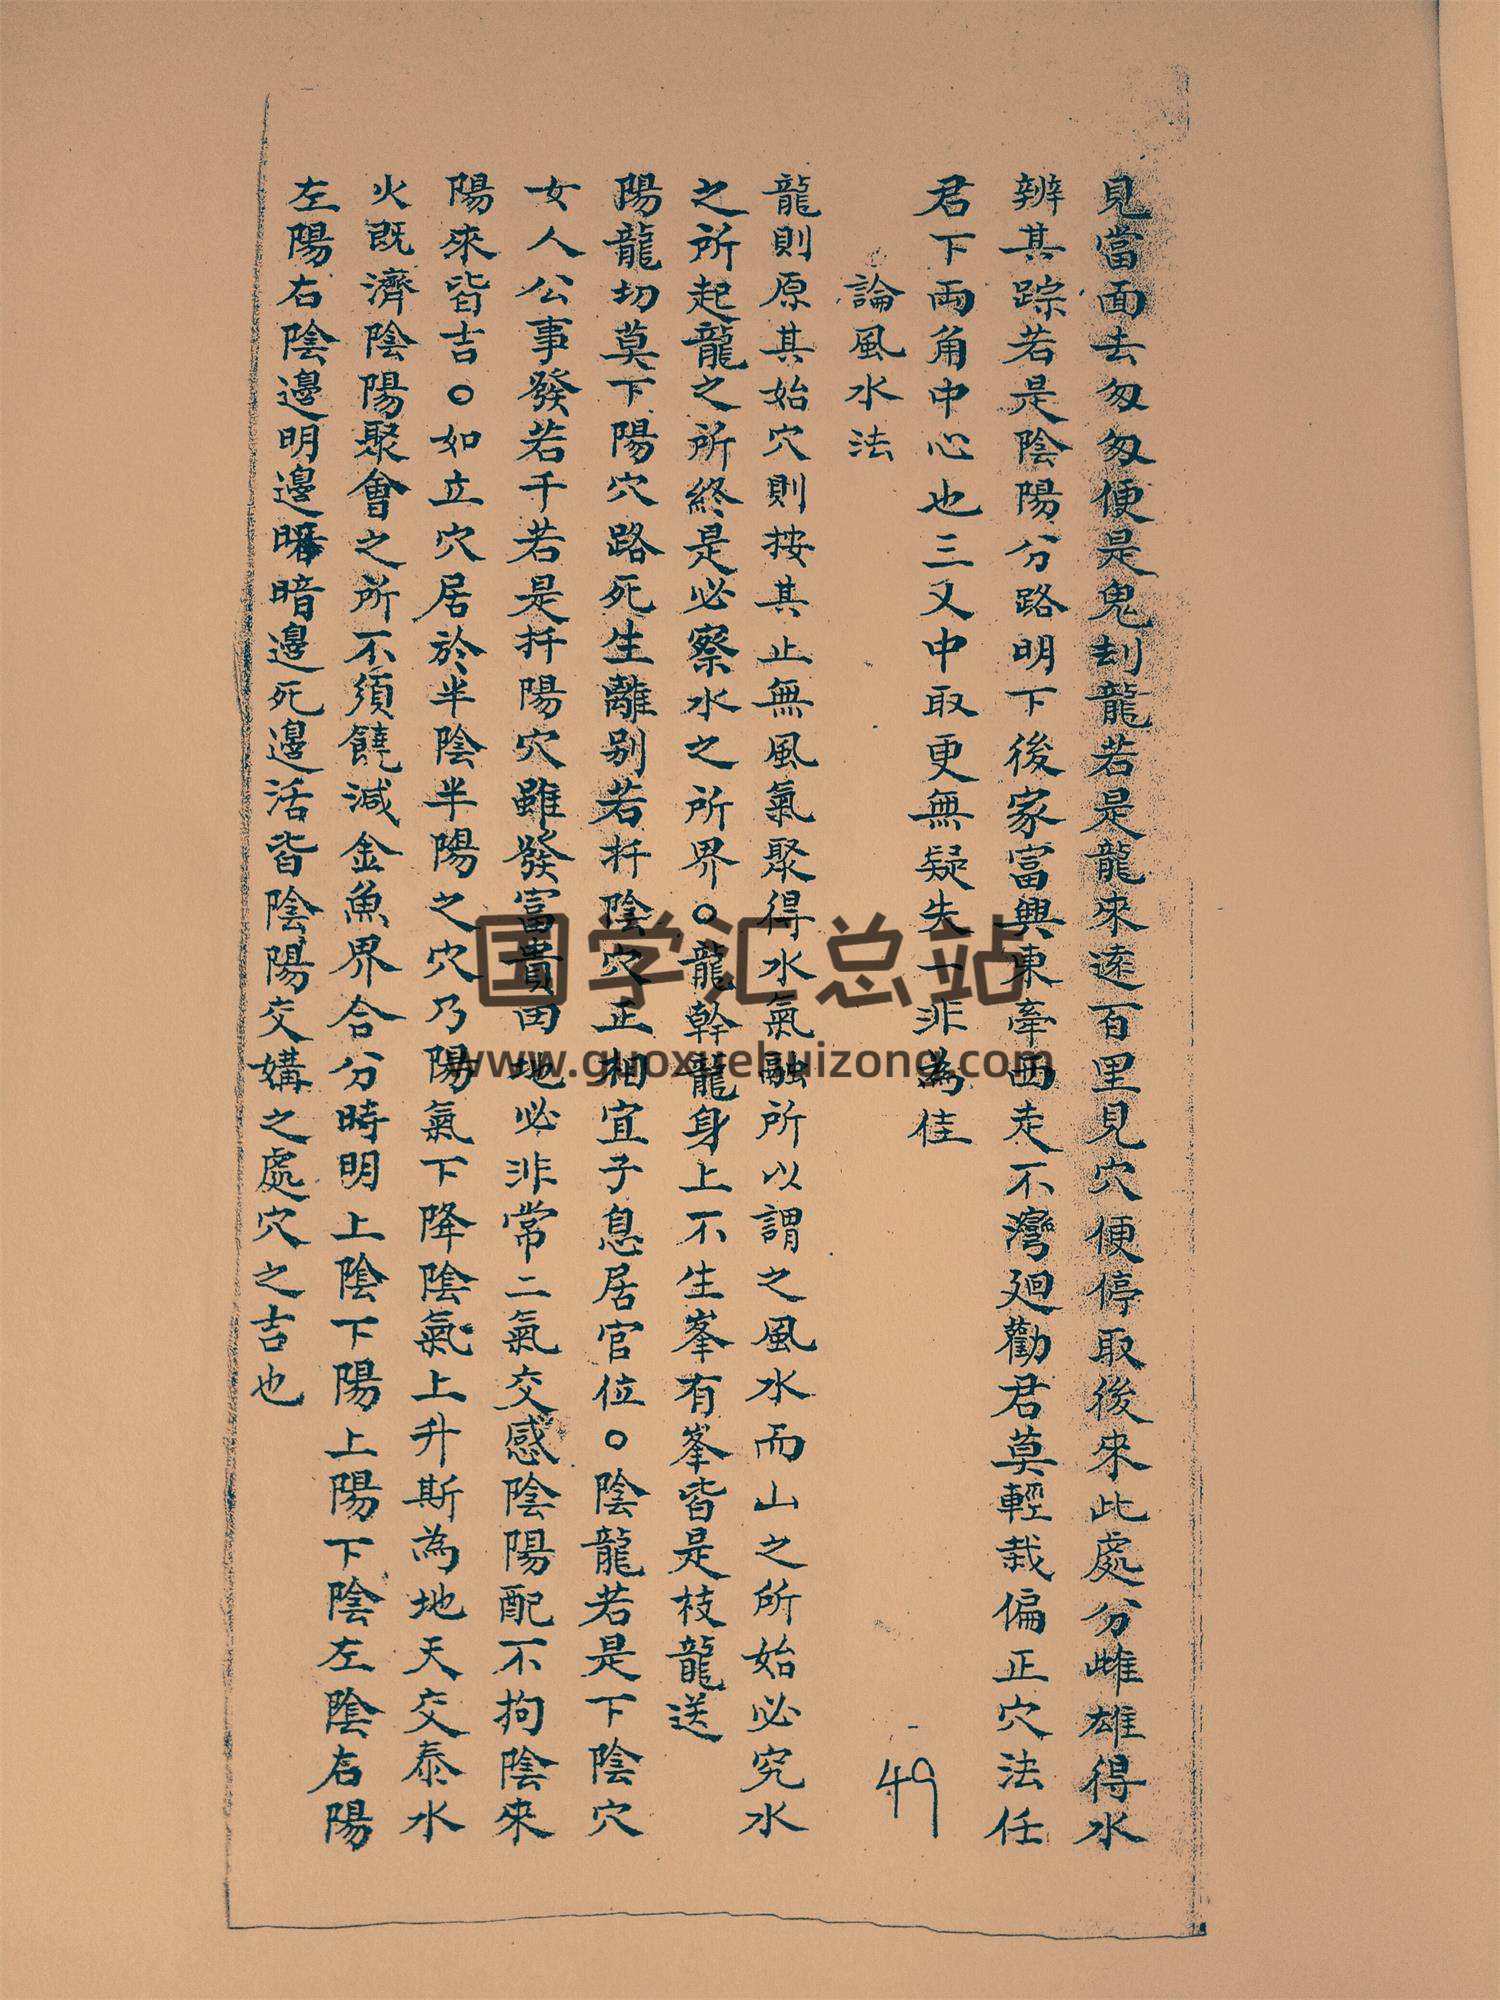 見當面去匆匆便是鬼刦龍若是龍來遠百里見穴便停取後來此處分雌雄得水
辨其踪若是陰陽分路明下後家富興東牽西走不灣廻勸君莫輕裁偏正穴法任
君下両角中心也三叉中取更無疑失一非為佳
論風水法
龍則原其始穴則按其止無風氣聚得水氣融所以謂之風水而山之所始必究水
之所起龍之所終是必察水之所界○龍幹龍身上不生峯有峯皆是枝龍送
陽龍切莫下陽穴路死生離别若扦陰穴正相宜子息居官位○陰龍若是下陰穴
女人公事發若干若是扦陽穴雖發富貴田地必非常二氣交感陰陽配不拘陰來
陽來皆吉○如立穴居於半陰半陽之穴乃陽氣下降陰氣上升斯為地天交泰水
火既濟陰陽聚會之所不須饒減金魚界合分時明上陰下陽上陽下陰左陰右陽
左陽右陰邊明邊暗邊死邊活皆陰陽交媾之處穴之吉也
49
国学汇总站
www.guoxuehuizong.com